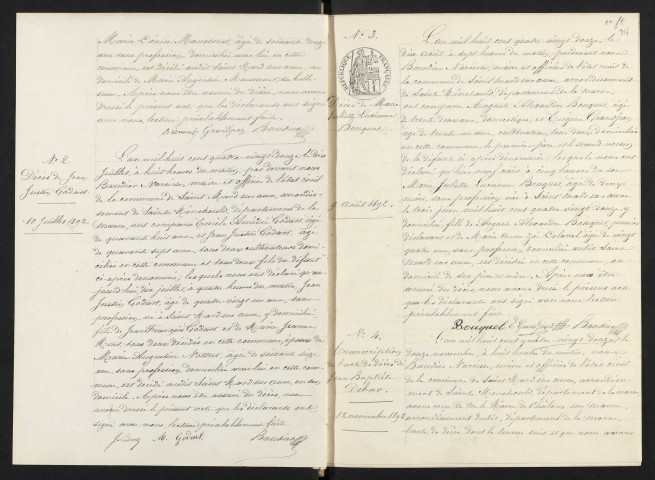 Marie Louise Mauconus, âgé de soixante douze
ans sans profession, domiciliée avec lui en cette
commune, est décédé audit Saint Mard sur auve, au
domicile de Marie Augustin
sonne. Après nous être assuré du décès, nous avons
dressé le présent acte que les déclarants ont signé
avec nous, lecture préalablement faite.
Baudier
N° 2
Décès de Jean
Justin Godart.
10 Juillet 1892.
L'an mil huit cent quatre vingt douze le dix
Juillet, à huit heures du matin, par devant nous
Baudier Narcisse, maire et officier de l'état civil
de la commune de Saint Mard sur auve, arrondis-
sement de Sainte Menehould, département de la
marne, ont comparu Amédée Godart, âgé
de quarante huit ans, et Jean Justin Godart, âgé
de quarante sept ans, tous deux cultivateurs domi-
ciliés en cette commune et tous deux fils du défunt
ci-après dénommé, lesquels nous ont déclaré que au-
jourd'hui dix juillet, à quatre heures du matin, Jean
Justin Godart, âgé de quatre vingt un ans, sans
profession, né à Saint Mard sur auve, y domicilié
fils de Jean François Godart et de Marie Jeanne
tous deux décédés en cette commune, époux de
Marie Augustine âgée de soixante
ans, sans profession, domiciliée avec lui en cette com-
mune, est décédé audit Saint Mard sur auve, en son
domicile. Après nous être assuré du décès, nous
avons dressé le présent acte que les déclarants ont
signé avec nous, lecture préalablement faite.
Godart Baudier
N° 3.
RÉPUBLIQUE FRANÇAISE
Décès de Marie
Juliette Lucienne
Bouquet
9 Août 1892.
L'an mil huit cent quatre vingt douze le
dix août à sept heures du matin, pardevant nous
Baudier Narcisse, maire et officier de l'état civil
de la commune de Saint Mard sur auve, arrondissement
de Sainte Menehould, département de la marne,
ont comparu Auguste Alexandre Bouquet, âgé
de trente deux ans, domestique, et Eugène Grandjean
âgé de trente un ans, cultivateur, tous deux domiciliés
en cette commune, le premier père et le second voisin
de la défunte ci-après dénommée, lesquels nous ont
déclaré que hier neuf août à cinq heures du soir
Marie Juliette Lucienne Bouquet, âgée de
née à Saint Mard sur auve
le trois juin mil huit cent quatre vingt douze, y
domiciliée, fille de Auguste Alexandre Bouquet, premier
déclarant et de Marie âgée de vingt
quatre ans, sans profession, domiciliée audit Saint
Mard sur auve, est décédée en cette commune, au
domicile de ses père et mère. Après nous être
assuré du décès, nous avons dressé le présent acte
que les déclarants ont signé avec nous, lecture
préalablement faite.
Bouquet E Grandjean Baudier
N° 4.
Transcription
de l'acte de décès de
Jean Baptiste
12 novembre 1892
L'an mil huit cent quatre vingt douze, le
douze novembre, à huit heures du matin, nous
Baudier Narcisse, maire et officier de l'état civil
de la commune de Saint Mard sur auve, arrondisse-
ment de Sainte Menehould, département de la marne
avons reçu de M. le Maire de Châlons sur marne,
arrondissement dudit, département de la marne,
l'acte de décès dont la teneur suit et que nous avons